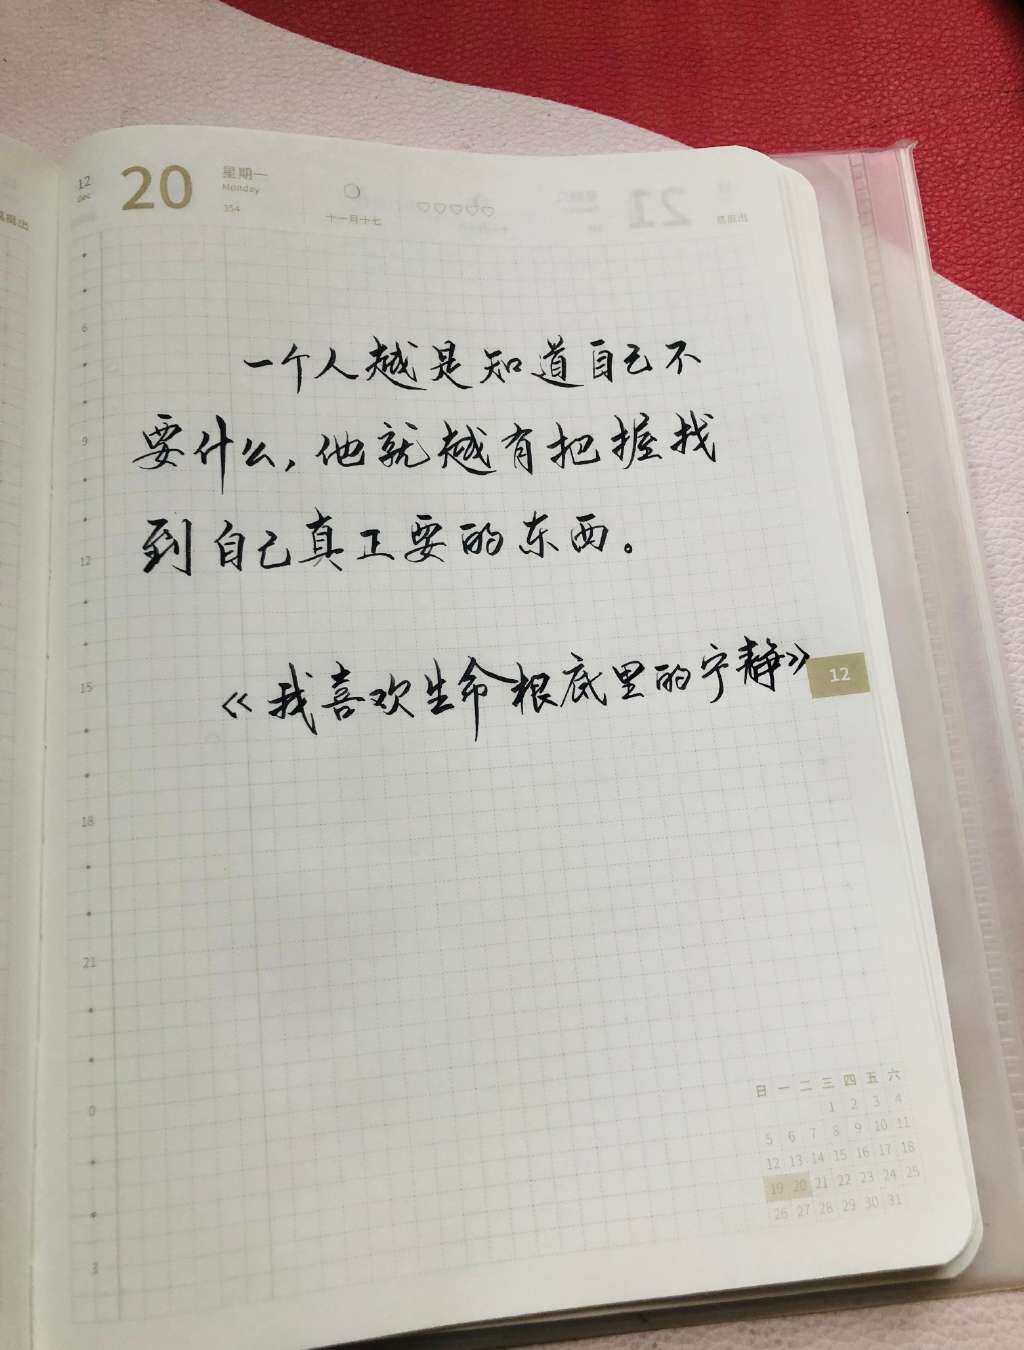 12
Dec
20
星期一
Monday
354
十一月十七
一个人越是知道自己不
要什么，他就越有把握找
到自己真正要的东西。
《我喜欢生命根底里的宁静》
12
6
9
12
15
18
21
0
3
日 一 二 三 四 五 六
1 2 3 4
5 6 7 8 9 10 11
12 13 14 15 16 17 18
19 20 21 22 23 24 25
26 27 28 29 30 31